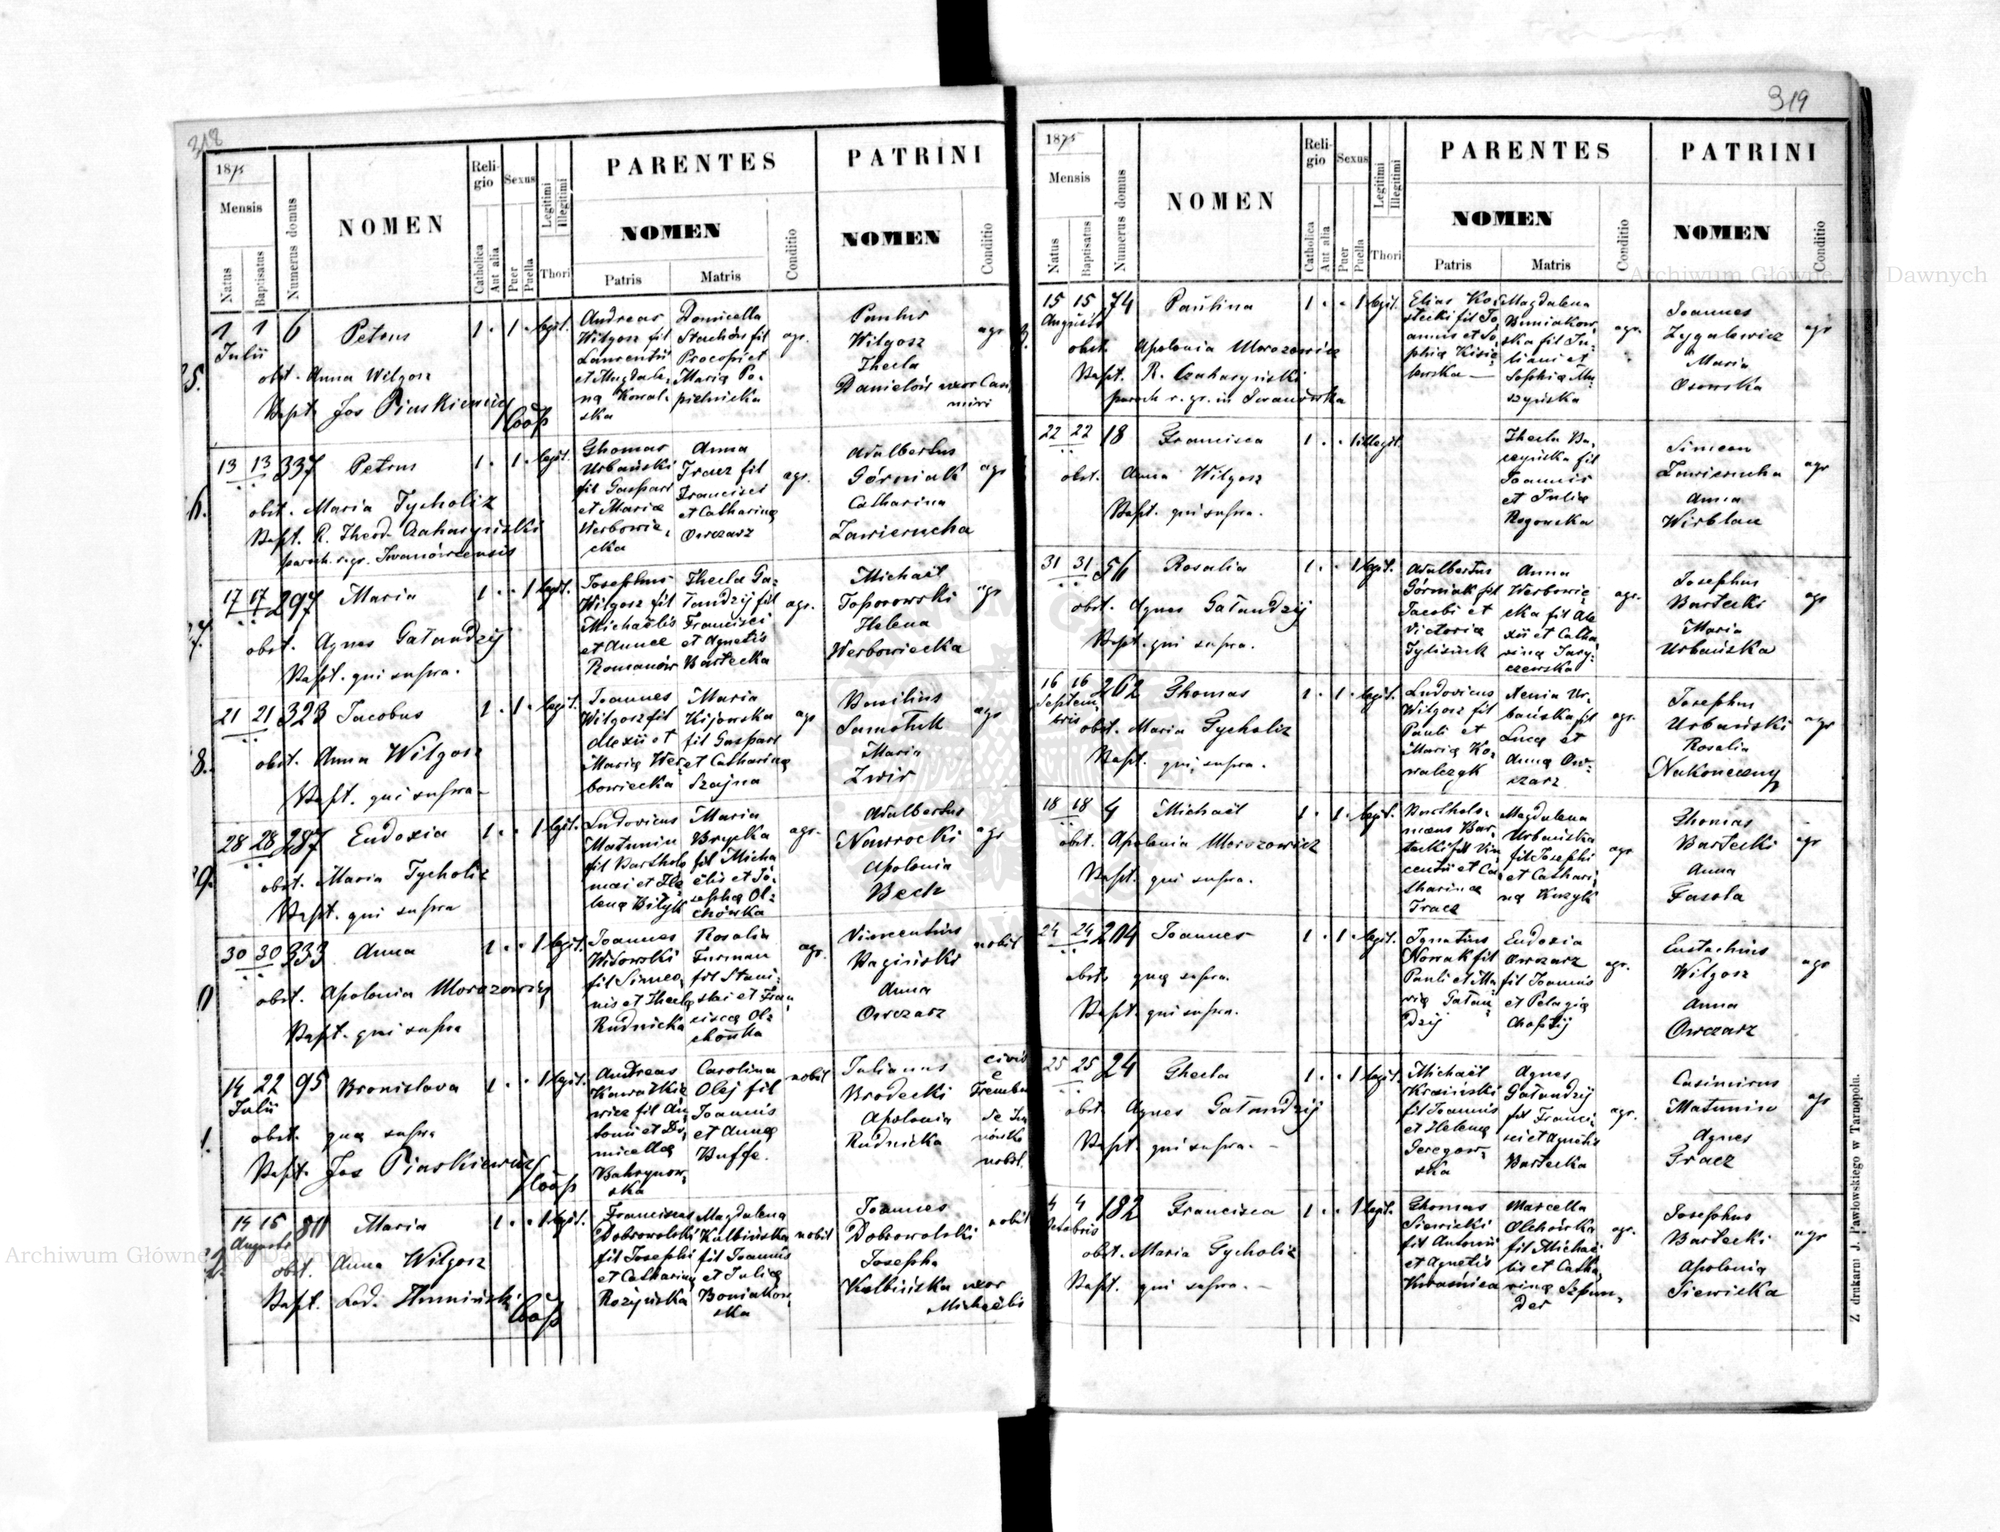 318
1875
Mensis
Natus
Baptisatus
Numerus domus
NOMEN
Religio
Catholica
Aut alia
Sexus
Puer
Puella
Legitimi
Illegitimi
Thori
PARENTES
NOMEN
Patris
Matris
Conditio
PATRINI
NOMEN
Conditio
1 1 6 Petrus 1 · 1 · legit.
Julii
obst. Anna Wilgosz
Bapt. Jos Piaskiewicz
Coop
Andreas
Wilgosz fil
Laurentii
et Magdale-
na Kowal-
ska
Domicella
Stachów fil
Procopii et
Maria Po-
pielnicka
agr.
Paulus
Wilgosz
Thecla
Danielów uxor Casi
miri
agr
13 13 337 Petrus 1 · 1 · legit.
obst. Maria Tycholiz
Bapt. R. Theod. Czaharyński
paroch. r. gr. Iwanówcensis
Thomas
Urbański
fil Gaspari
et Maria
Werbowie-
cka
Anna
Tracz fil
Francisci
et Catharina
Owczarz
agr.
Adalbertus
Górniak
Catharina
Zawierucha
agr
17 17 297 Maria 1 · · 1 legit.
obst. Agnes Gałandzij
Bapt. qui supra.
Josephus
Wilgosz fil
Michaëlis
et Annae
Romanów
Thecla Ga-
łandzij fil
Francisci
et Agnetis
Bartecka
agr.
Michaël
Toporowski
Helena
Werbowiecka
agr
21 21 323 Jacobus 1 · 1 · legit.
obst. Anna Wilgosz
Bapt. qui supra
Joannes
Wilgosz fil
Alexii et
Maria Wer-
bowiecka
Maria
Kijowska
fil Gaspari
et Catharina
Szajna
agr
Basilius
Samotuk
Maria
Zwir
agr
28 28 287 Eudoxia 1 · · 1 legit.
obst. Maria Tycholiz
Bapt. qui supra
Ludovicus
Matunin
fil Bartholo
maei et He
lena Biłyk
Maria
Brycka
fil Micha
ëlis et Jo-
sepha Ol-
chówka
agr.
Adalbertus
Nawrocki
Apolonia
Beck
agr
30 30 333 Anna 1 · · 1 legit.
obst. Apolonia Morozowicz
Bapt. qui supra
Joannes
Witowski
fil Simeo-
nis et Thecla
Rudnicka
Rosalia
Furman
fil Stani-
slai et Fran
cisca Ol-
chówka
agr.
Vincentius
Baginski
Anna
Owczarz
nobil
14 22 95 Bronislava 1 · · 1 legit.
Julii
obst. quae supra
Bapt. Jos Piaskiewicz
Coop
Andreas
fil An
tonii et Do-
micella
Bahrynow-
ska
Carolina
Olej fil
Joannis
et Anna
Buffe.
nobil
Julianus
Brodecki
Apolonia
Rudnicka
civis
nobil.
14 15 80 Maria 1 · · 1 legit.
Augusti
obst. Anna Wilgosz
Bapt. Lad.
Coop
Franciscus
Dobrowolski
fil Josephi
et Catharina
Rożyńska
Magdalena
Kulbinska
fil Joannis
et Julia
Boniakow-
ska
nobil
Joannes
Dobrowolski
Josepha
Kulbińska uxor
Michaëlis
nobil
319
1875
Mensis
Natus
Baptisatus
Numerus domus
NOMEN
Religio
Catholica
Aut alia
Sexus
Puer
Puella
Legitimi
Illegitimi
Thori
PARENTES
NOMEN
Patris
Matris
Conditio
PATRINI
NOMEN
Conditio
15 15 74 Paulina 1 · · 1 legit.
Augusti
obst. Apolonia Morozowicz
Bapt. R. Czaharyński
paroch r. gr. in Iwanówka
Elias Ko-
stecki fil Jo
annis et So-
phia Kisie-
lewska
Magdalena
Buniakow-
ska fil Ju-
liani et
Sophia Mu-
szyńska
agr.
Joannes
Zygalewicz
Maria
Osowska
agr
22 22 18 Francisca 1 · · 1 illegit.
obst. Anna Wilgosz
Bapt. qui supra.
Thecla Ba-
czyńska fil
Joannis
et Julia
Rogowska
Simeon
Zawierucha
Anna
Wirblan
agr
31 31 56 Rosalia 1 · · 1 legit.
obst. Agnes Gałandzij
Bapt. qui supra.
Adalbertus
Górniak fil
Jacobi et
Victoria
Tyliszuk
Anna
Werbowie-
cka fil Ale
xii et Catha
rina Jary-
czewska
agr.
Josephus
Bartecki
Maria
Urbańska
agr
16 16 262 Thomas 1 · 1 · legit.
Septem
bris
obst. Maria Tycholiz
Bapt. qui supra.
Ludovicus
Wilgosz fil
Pauli et
Maria Ko-
walczyk
Xenia Ur-
bańska fil
Luca et
Anna Ow-
czarz
agr.
Josephus
Urbański
Rosalia
Nakoneczny
agr
18 18 4 Michaël 1 · 1 · legit.
obst. Apolonia Morozowicz
Bapt. qui supra.
Bartholo-
maeus Bar-
tecki fil Vin
centii et Ca
tharina
Tracz
Magdalena
Urbańska
fil Josephi
et Cathari-
na Kuzyk
agr
Thomas
Bartecki
Anna
Fasola
agr
24 24 204 Joannes 1 · 1 · legit.
obst. quae supra.
Bapt. qui supra.
Ignatius
Nowak fil
Pauli et Ma
ria Gałan
dzij
Eudoxia
Owczarz
fil Joannis
et Pelagia
Chaptij
agr.
Eustachius
Wilgosz
Anna
Owczarz
agr
25 25 24 Thecla 1 · · 1 legit.
obst. Agnes Gałandzij
Bapt. qui supra.
Michaël
Krasiński
fil Joannis
et Helena
Geregow-
ska
Agnes
Gałandzij
fil Franci-
sci et Agnetis
Bartecka
agr.
Casimirus
Matuniw
Agnes
Tracz
agr
4 4 182 Francisca 1 · · 1 legit.
Octobris
obst. Maria Tycholiz
Bapt. qui supra.
Thomas
Siewicki
fil Antonii
et Agnetis
Kwaśnica
Marcella
Olchówka
fil Michaë
lis et Catha
rina Szpun-
der
agr.
Josephus
Bartecki
Apolonia
Siewicka
agr
Z drukarni J. Pawłowskiego w Tarnopolu.
Archiwum Główne Akt Dawnych
Archiwum Główne Akt Dawnych